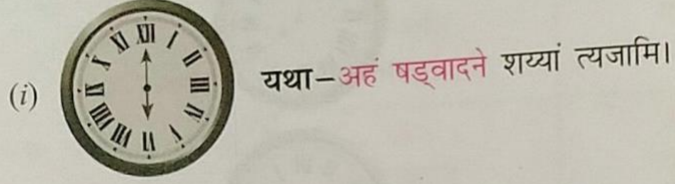 (i)
XII I II III IV V VI VII VIII IX X XI
यथा–अहं षड्वादने शय्यां त्यजामि।